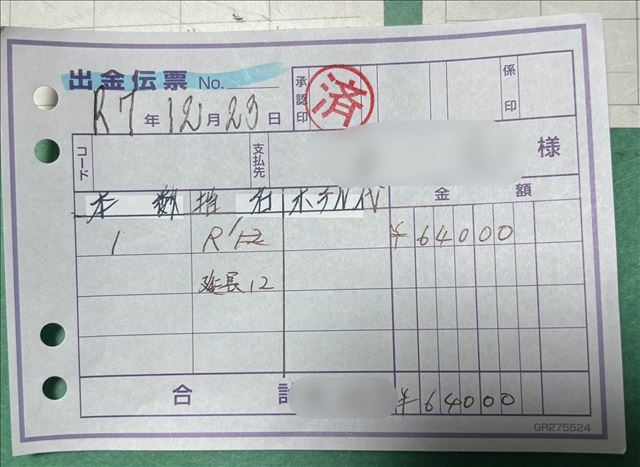 出金伝票 No.
承認印 済 係印
R7年12月23日
コード 支払先 様
本数 指名 ホテル代 金額
1 R'12 ¥64000
延長12
合計 ¥64000
GR275524